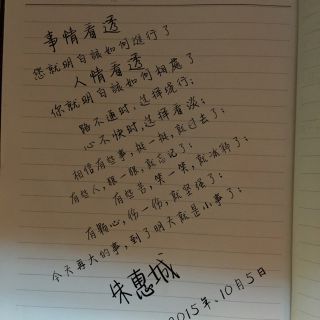 事情看透
您就明白該如何進行了
人情看透
你就明白該如何相處了
路不通时,选择绕行;
心不快时,选择看淡;
相信有些事,挺一挺,就过去了;
有些人,狠一狠,就忘记了;
有些苦,笑一笑,就冰释了;
有颗心,伤一伤,就坚强了;
今天再大的事,到了明天就是小事了;
朱惠城
2015年、10月5日